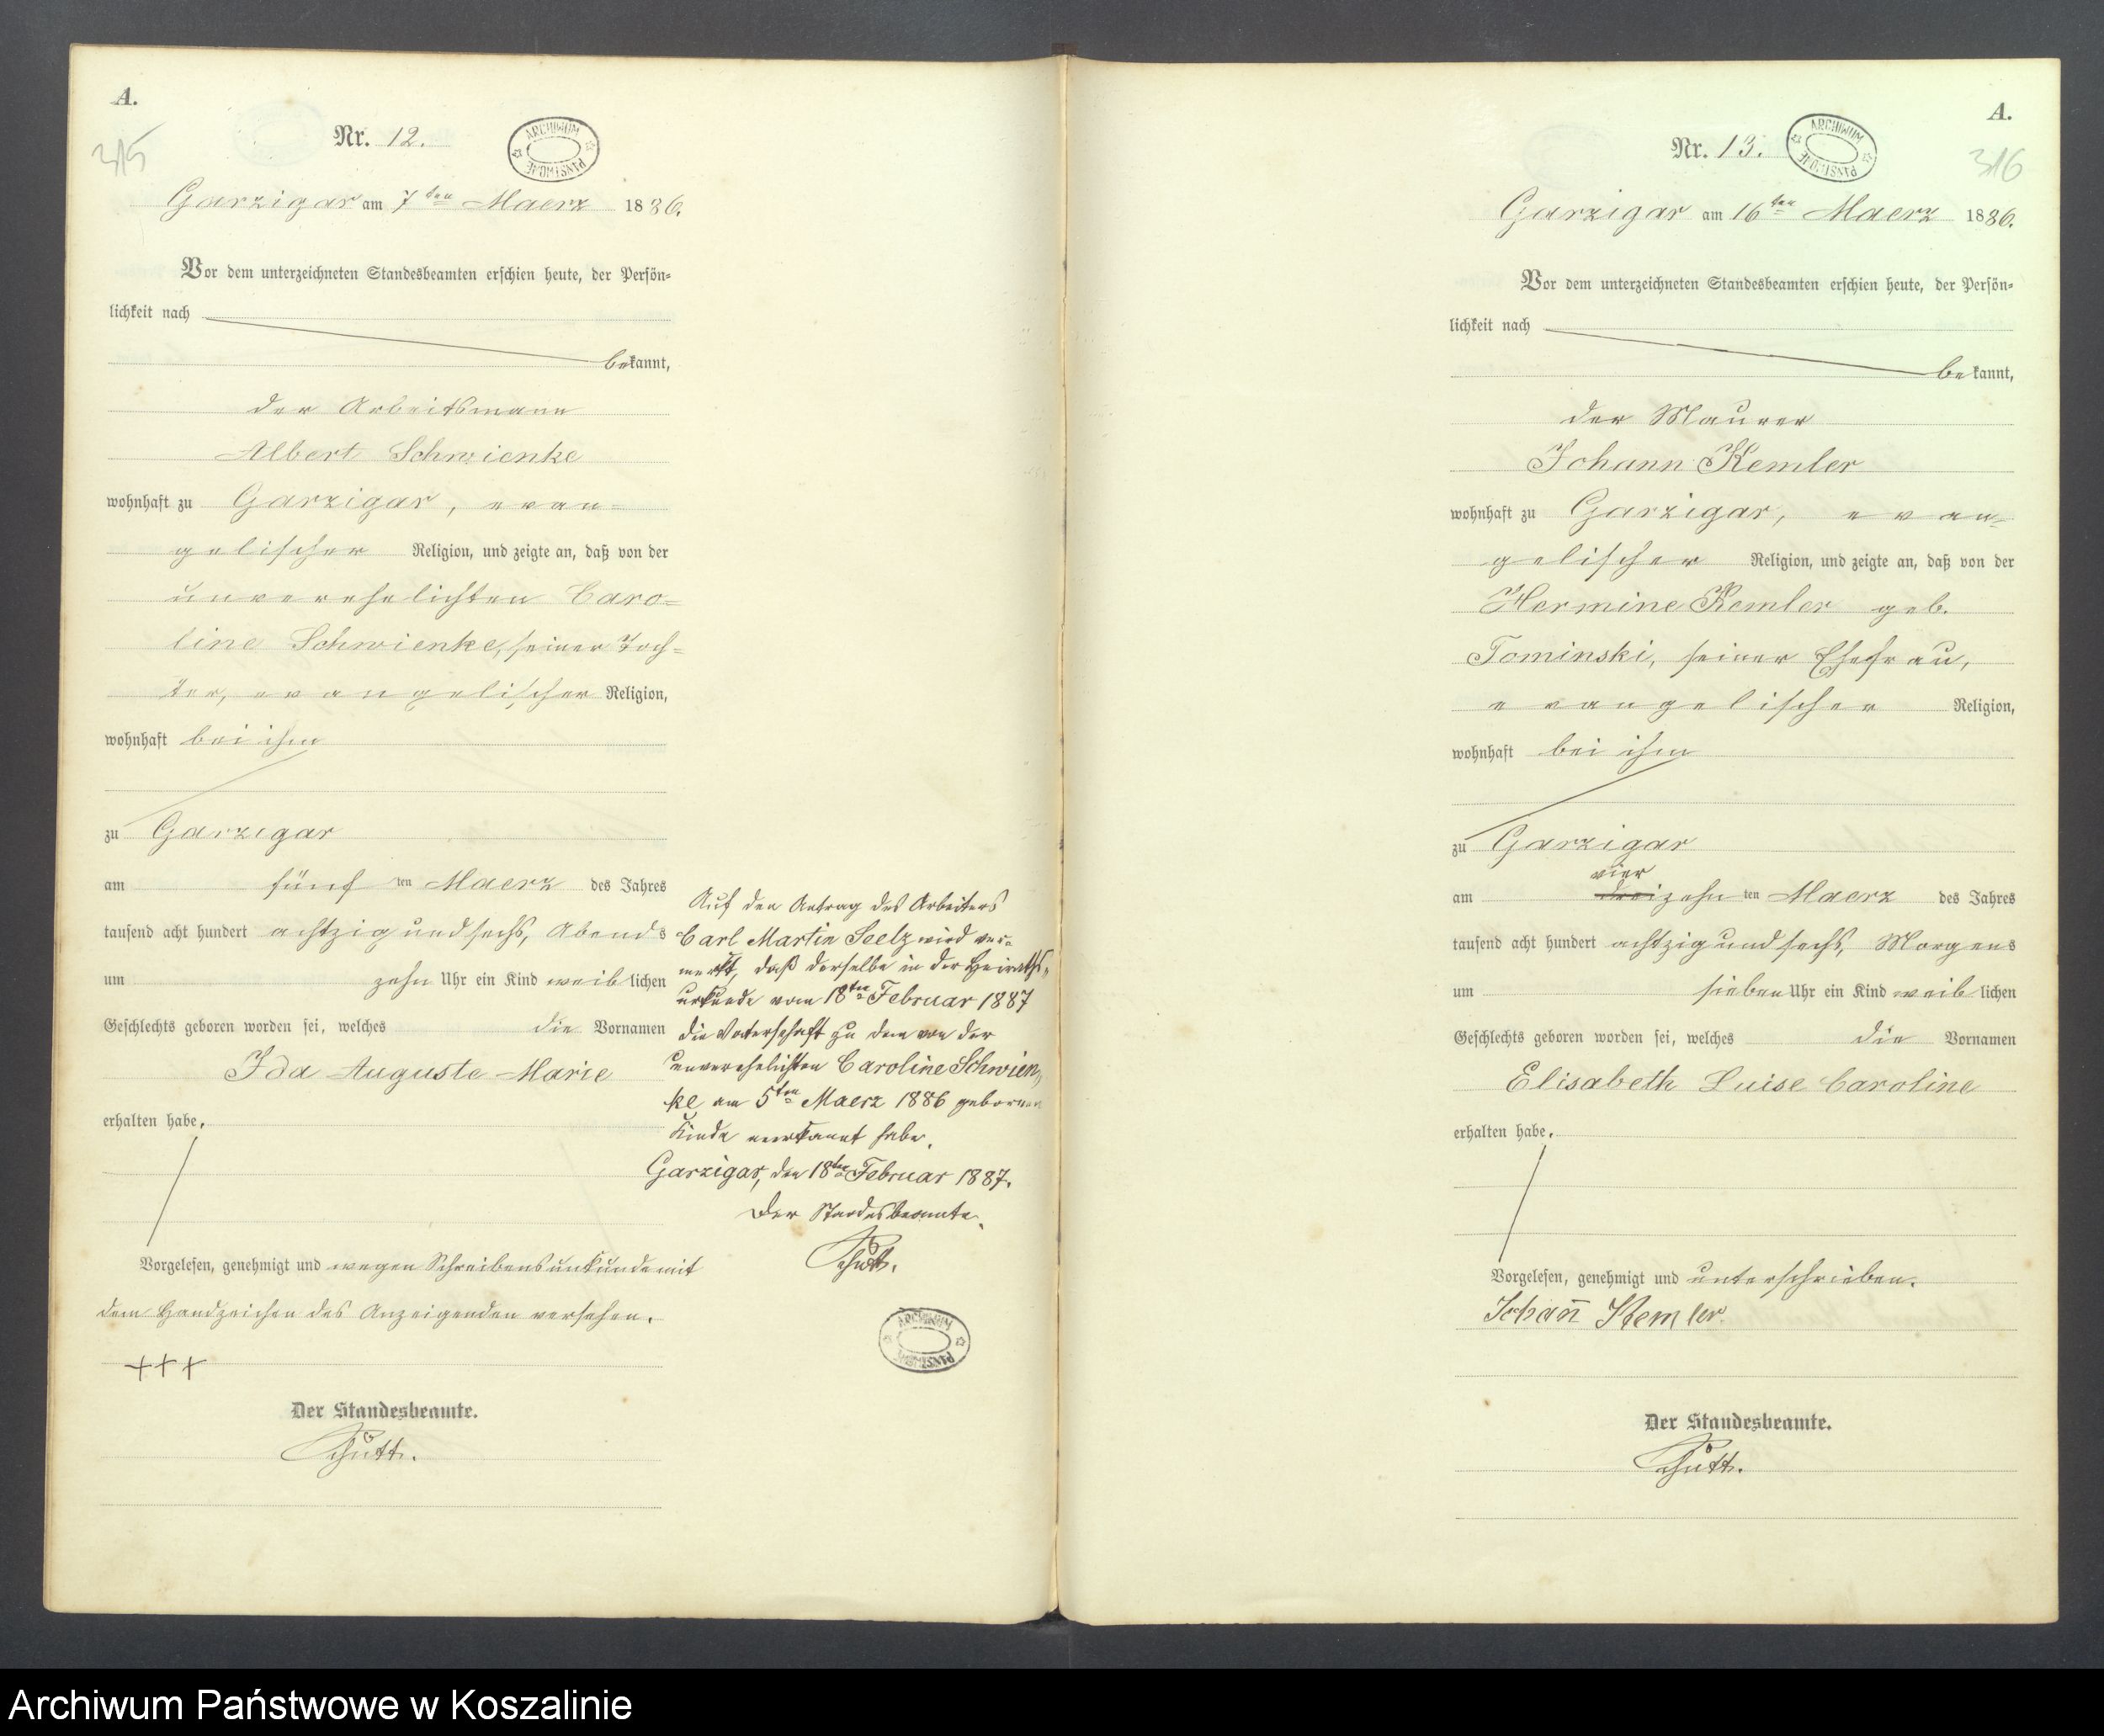 A.
315
Nr. 12.
ARCHIWUM PAŃSTWOWE
Garzigar am 7ten Maerz 1886.
Vor dem unterzeichneten Standesbeamten erschien heute, der Persön-
lichkeit nach
bekannt,
der Arbeitsmann
Albert Schwienke
wohnhaft zu Garzigar, evan-
gelischer Religion, und zeigte an, daß von der
unverehelichten Caro-
line Schwienke, seiner Toch-
ter, evangelischer Religion,
wohnhaft bei ihm
zu Garzigar
am fünf ten Maerz des Jahres
tausend acht hundert achtzig und sechs, Abends
um zehn Uhr ein Kind weiblichen
Geschlechts geboren worden sei, welches die Vornamen
Ida Auguste Marie
erhalten habe.
Vorgelesen, genehmigt und wegen Schreibensunkunde mit
dem Handzeichen des Anzeigenden versehen.
+++
Der Standesbeamte.
Schütt.
Auf den Antrag des Arbeiters
Carl Martin Seelz wird ver-
merkt, daß derselbe in der Heiraths-
urkunde vom 18ten Februar 1887
die Vaterschaft zu dem von der
unverehelichten Caroline Schwien-
ke am 5ten Maerz 1886 geborenen
Kinde anerkannt habe.
Garzigar, den 18ten Februar 1887.
Der Standesbeamte.
Schütt.
ARCHIWUM PAŃSTWOWE
A.
316
Nr. 13.
ARCHIWUM PAŃSTWOWE
Garzigar am 16ten Maerz 1886.
Vor dem unterzeichneten Standesbeamten erschien heute, der Persön-
lichkeit nach
bekannt,
der Maurer
Johann Kemler
wohnhaft zu Garzigar, evan-
gelischer Religion, und zeigte an, daß von der
Hermine Kemler geb.
Tominski, seiner Ehefrau,
evangelischer Religion,
wohnhaft bei ihm
zu Garzigar
vier
am dreizehn ten Maerz des Jahres
tausend acht hundert achtzig und sechs, Morgens
um sieben Uhr ein Kind weiblichen
Geschlechts geboren worden sei, welches die Vornamen
Elisabeth Luise Caroline
erhalten habe.
Vorgelesen, genehmigt und unterschrieben.
Johan̄ Kemler
Der Standesbeamte.
Schütt.
Archiwum Państwowe w Koszalinie